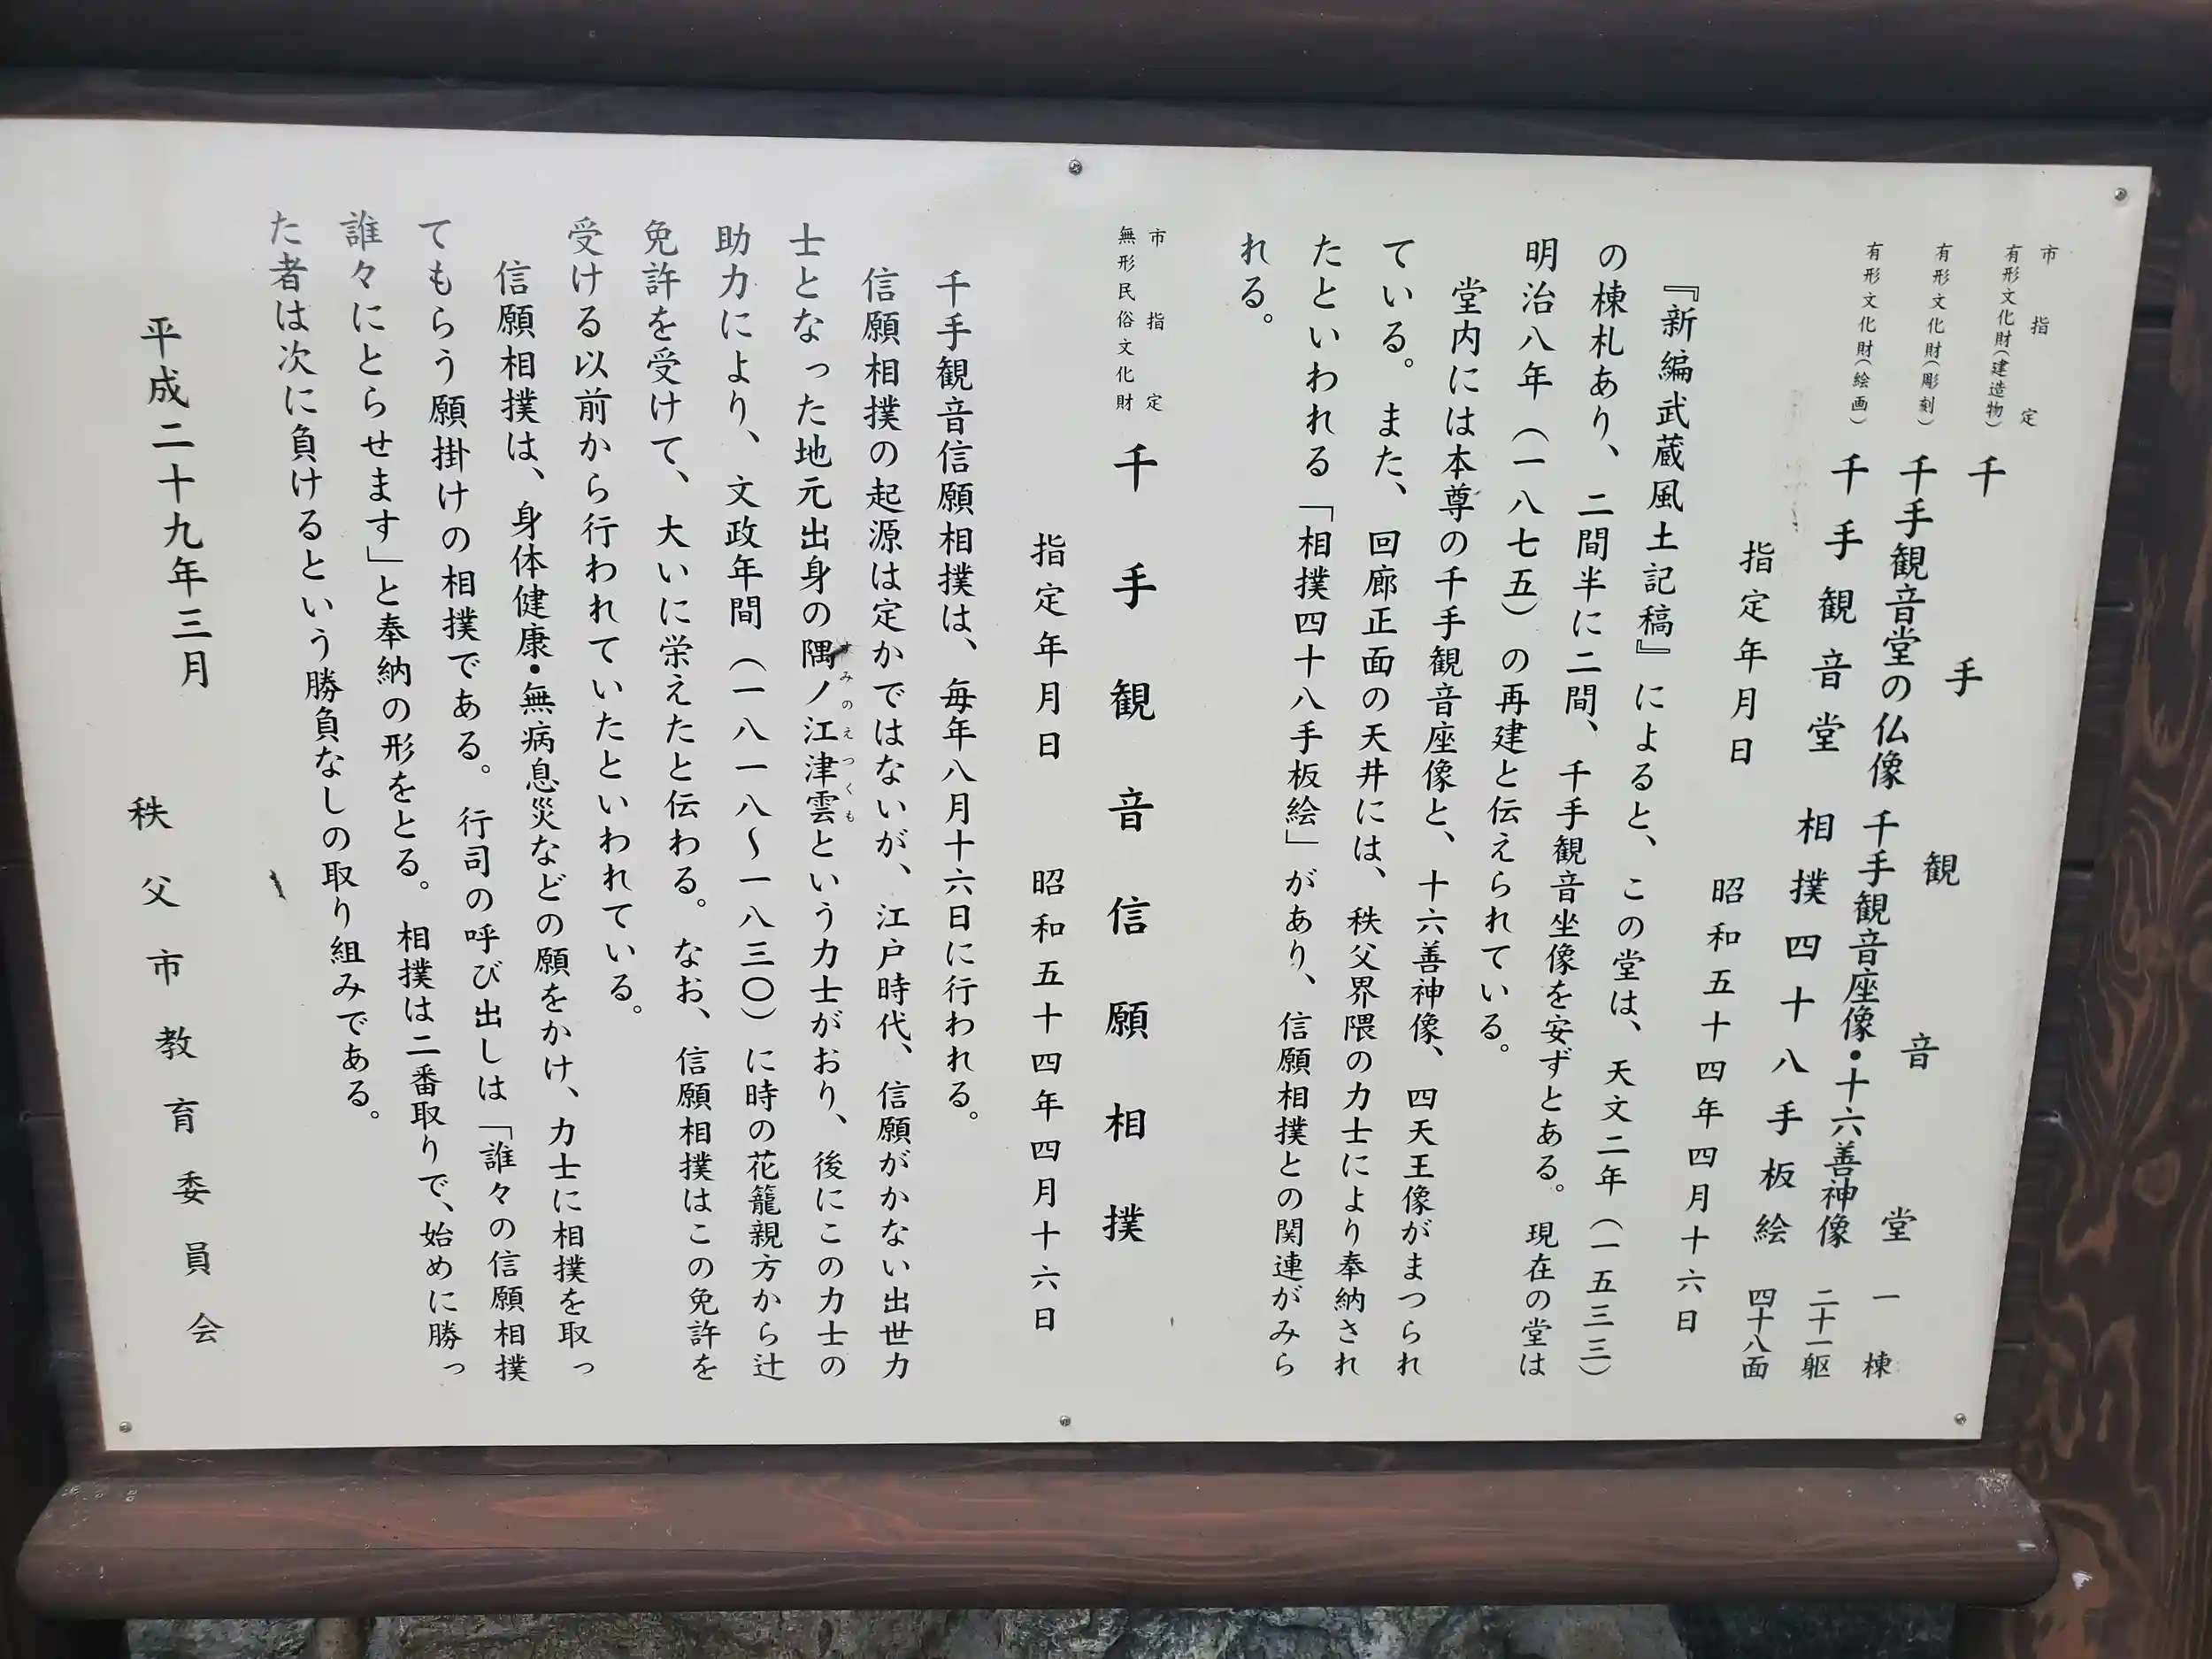 市指定
有形文化財（建造物） 千手観音堂 一棟
有形文化財（彫刻） 千手観音堂の仏像 千手観音座像・十六善神像 二十一躯
有形文化財（絵画） 千手観音堂 相撲四十八手板絵 四十八面
指定年月日 昭和五十四年四月十六日
『新編武蔵風土記稿』によると、この堂は、天文二年（一五三三）
の棟札あり、二間半に二間、千手観音坐像を安ずとある。現在の堂は
明治八年（一八七五）の再建と伝えられている。
堂内には本尊の千手観音座像と、十六善神像、四天王像がまつられ
ている。また、回廊正面の天井には、秩父界隈の力士により奉納され
たといわれる「相撲四十八手板絵」があり、信願相撲との関連がみら
れる。
市指定
無形民俗文化財 千手観音信願相撲
指定年月日 昭和五十四年四月十六日
千手観音信願相撲は、毎年八月十六日に行われる。
信願相撲の起源は定かではないが、江戸時代、信願がかない出世力
士となった地元出身の隅ノ江津雲という力士がおり、後にこの力士の
すみのえつくも
助力により、文政年間（一八一八〜一八三〇）に時の花籠親方から辻
免許を受けて、大いに栄えたと伝わる。なお、信願相撲はこの免許を
受ける以前から行われていたといわれている。
信願相撲は、身体健康・無病息災などの願をかけ、力士に相撲を取っ
てもらう願掛けの相撲である。行司の呼び出しは「誰々の信願相撲
誰々にとらせます」と奉納の形をとる。相撲は二番取りで、始めに勝っ
た者は次に負けるという勝負なしの取り組みである。
平成二十九年三月
秩父市教育委員会